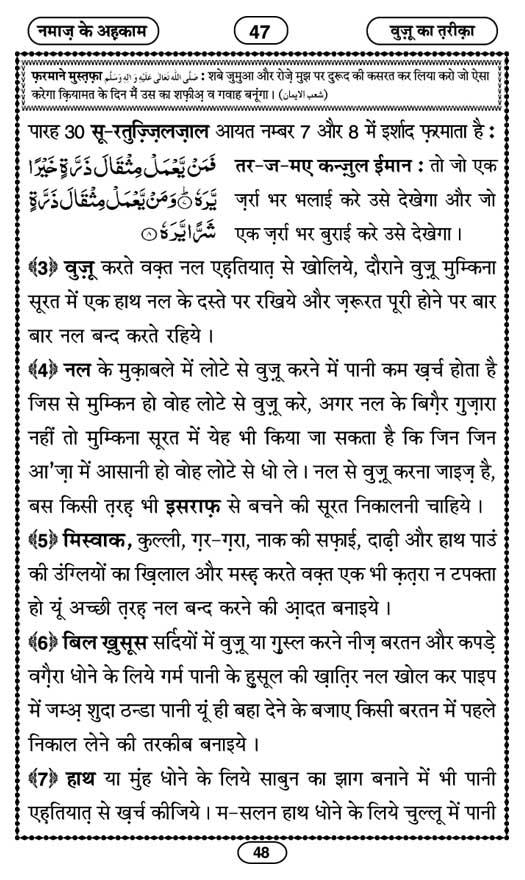 नमाज़ के अह़काम
47
वुज़ू का त़रीक़ा
फ़रमाने मुस्त़फ़ा صَلَّى اللّٰهُ تَعَالٰى عَلَيْهِ وَاٰلِهٖ وَسَلَّم : शबे जुमुआ और रोज़े मुझ पर दुरूद की कसरत कर लिया करो जो ऐसा
करेगा क़ियामत के दिन मैं उस का शफ़ीअ़ व गवाह बनूंगा। (شعب الایمان)
पारह 30 सू-रतुज़्ज़िलज़ाल आयत नम्बर 7 और 8 में इर्शाद फ़रमाता है :
فَمَنْ يَّعْمَلْ مِثْقَالَ ذَرَّةٍ خَيْرًا
يَّرَهٗ ؕ﴿۷﴾ وَمَنْ يَّعْمَلْ مِثْقَالَ ذَرَّةٍ
شَرًّا يَّرَهٗ ﴿۸﴾
तर-ज-मए कन्ज़ुल ईमान : तो जो एक
ज़र्रा भर भलाई करे उसे देखेगा और जो
एक ज़र्रा भर बुराई करे उसे देखेगा।
﴾3﴿ वुज़ू करते वक़्त नल एह़तियात़ से खोलिये, दौराने वुज़ू मुम्किना
सूरत में एक हाथ नल के दस्ते पर रखिये और ज़रूरत पूरी होने पर बार
बार नल बन्द करते रहिये।
﴾4﴿ नल के मुक़ाबले में लोटे से वुज़ू करने में पानी कम ख़र्च होता है
जिस से मुम्किन हो वोह लोटे से वुज़ू करे, अगर नल के बिग़ैर गुज़ारा
नहीं तो मुम्किना सूरत में येह भी किया जा सकता है कि जिन जिन
आ'ज़ा में आसानी हो वोह लोटे से धो ले। नल से वुज़ू करना जाइज़ है,
बस किसी त़रह़ भी इसराफ़ से बचने की सूरत निकालनी चाहिये।
﴾5﴿ मिस्वाक, कुल्ली, ग़र-ग़रा, नाक की सफ़ाई, दाढ़ी और हाथ पाउं
की उंग्लियों का ख़िलाल और मस्ह़ करते वक़्त एक भी क़त़रा न टपक्ता
हो यूं अच्छी त़रह़ नल बन्द करने की आ़दत बनाइये।
﴾6﴿ बिल ख़ुसूस सर्दियों में वुज़ू या ग़ुस्ल करने नीज़ बरतन और कपड़े
वग़ैरा धोने के लिये गर्म पानी के ह़ुसूल की ख़ात़िर नल खोल कर पाइप
में जम्अ़ शुदा ठन्डा पानी यूं ही बहा देने के बजाए किसी बरतन में पहले
निकाल लेने की तरकीब बनाइये।
﴾7﴿ हाथ या मुंह धोने के लिये साबुन का झाग बनाने में भी पानी
एह़तियात़ से ख़र्च कीजिये। म-सलन हाथ धोने के लिये चुल्लू में पानी
48